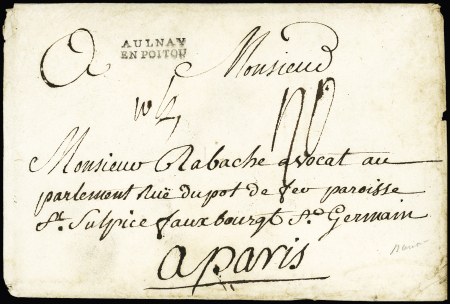 AULNAY
EN POITOU
A Monsieur
Monsieur Rabache avocat au
parlement Ruë du pot de fer paroisse
St. Sulpice fauxbourgt St. Germain
a paris